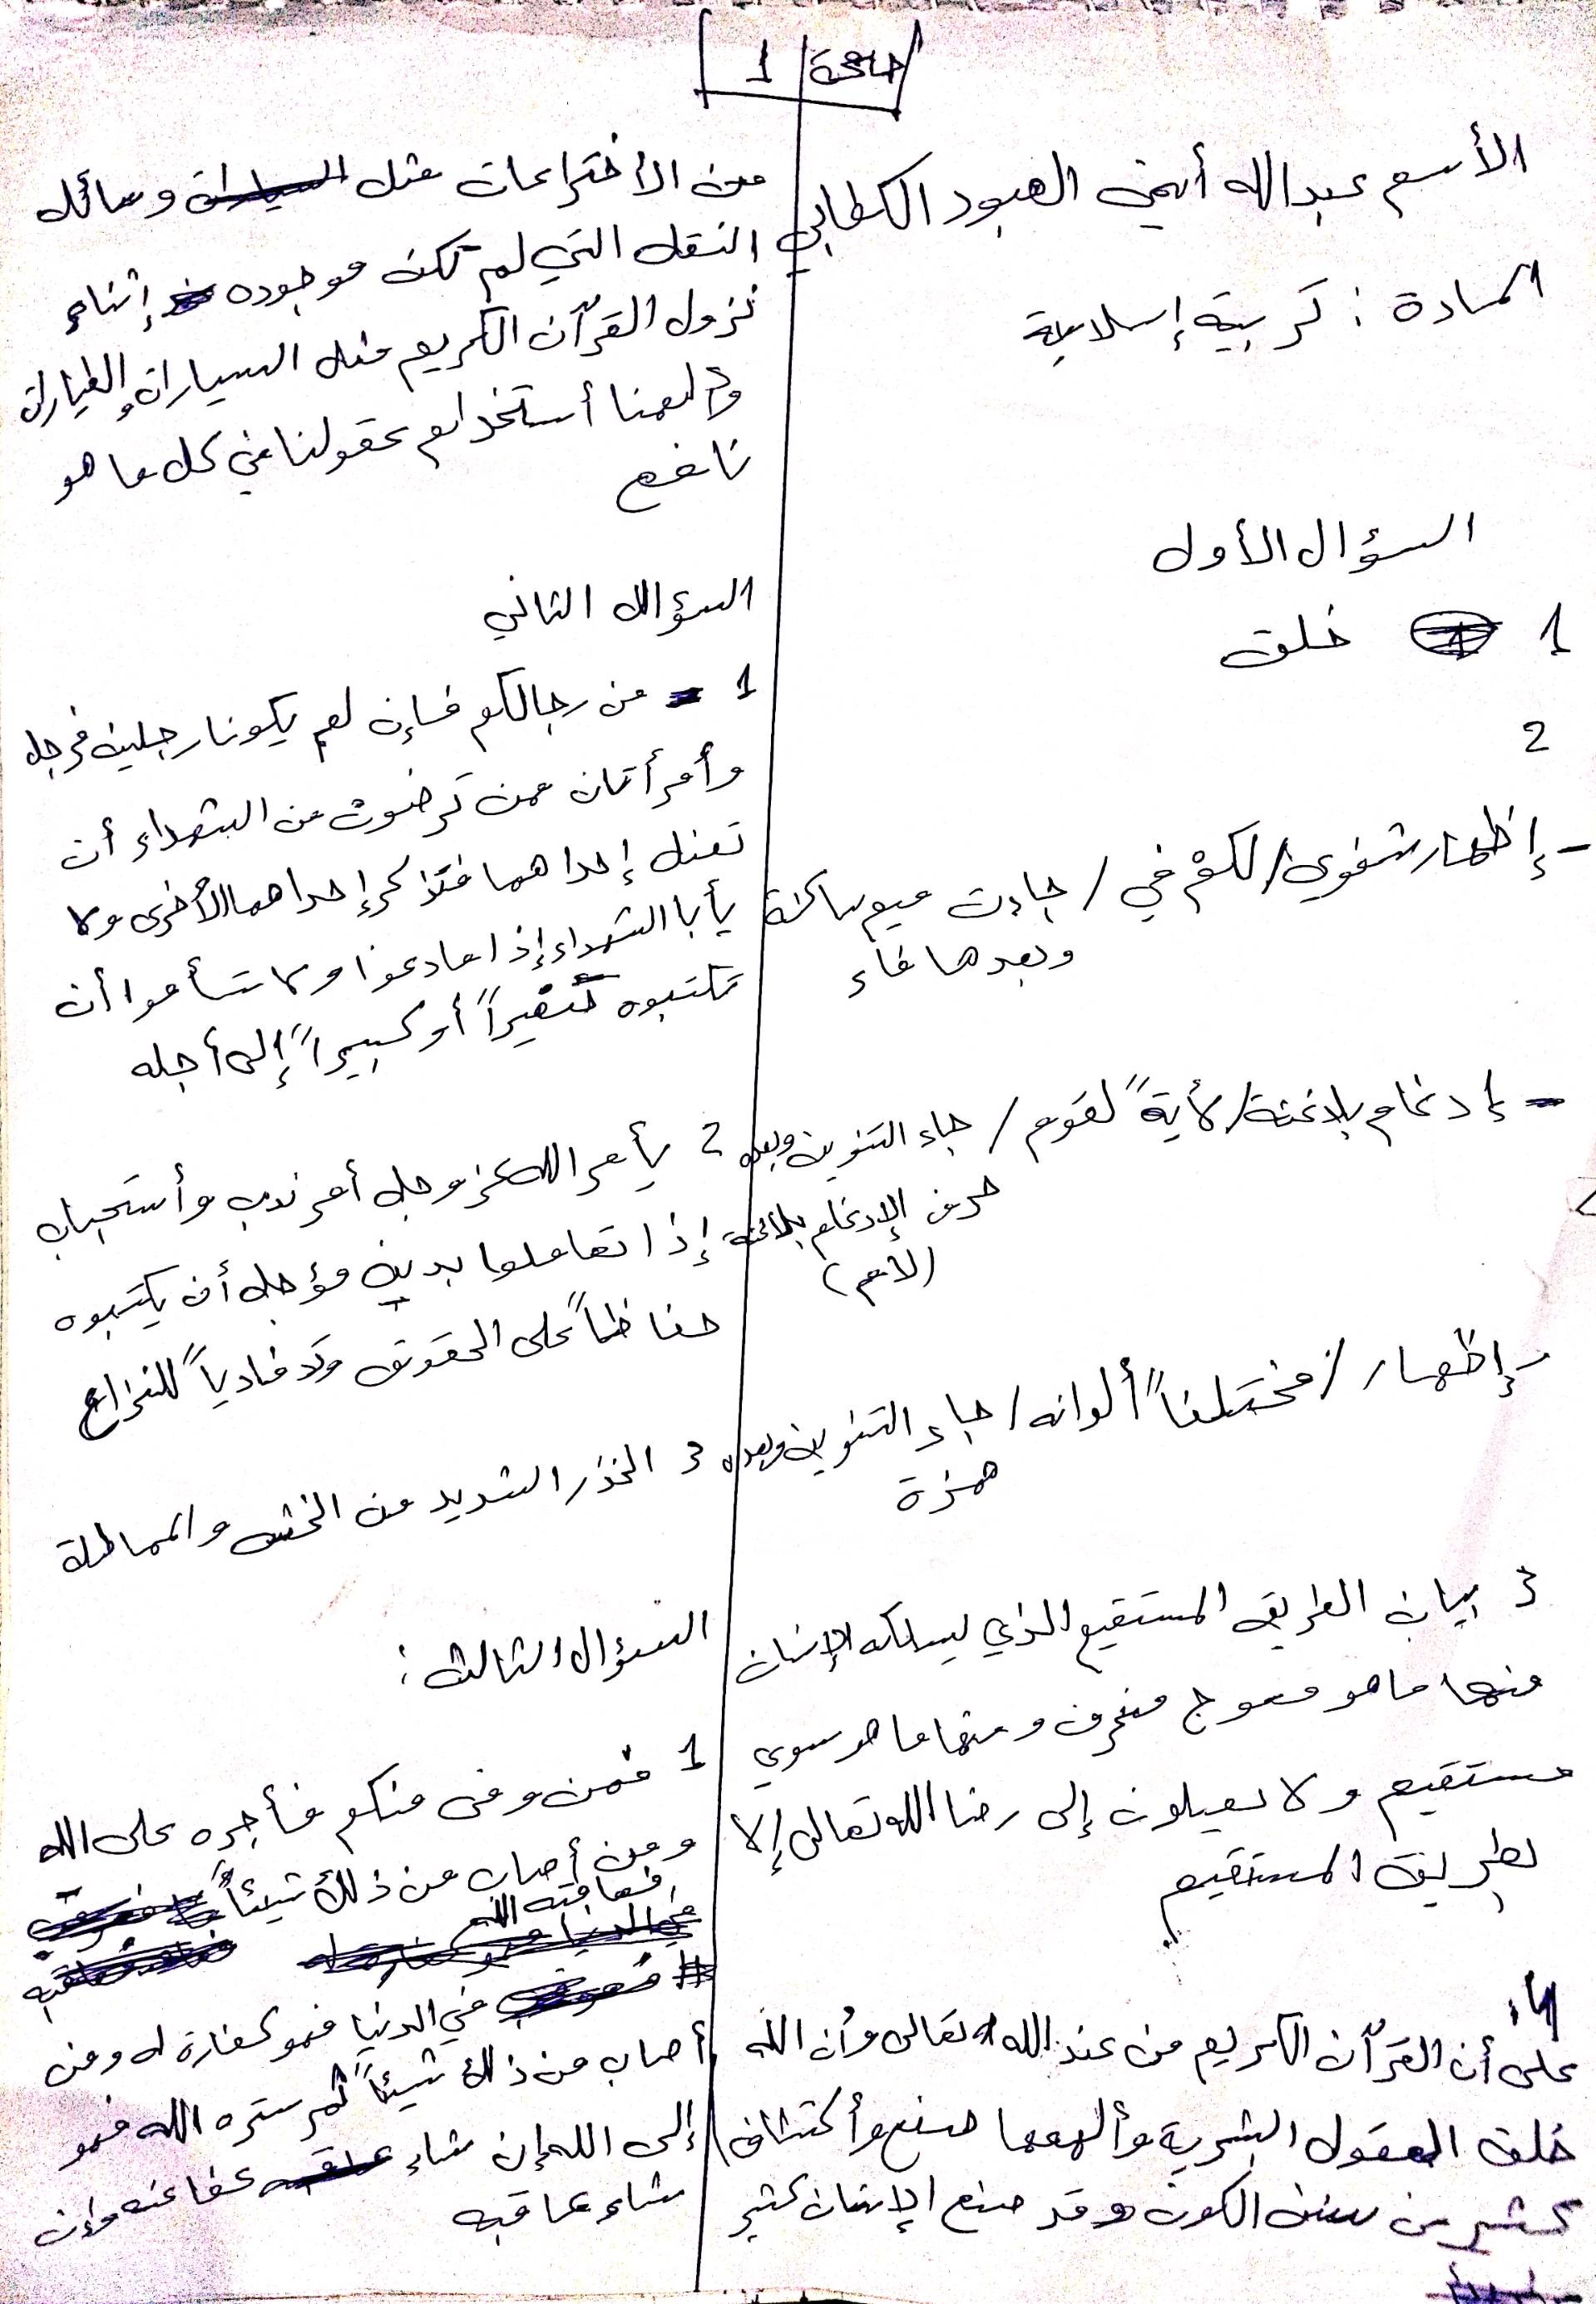 صفحة 1
الأسم عبدالله أيمن العبود الكطابي
المادة : تربية إسلامية
السؤال الأول
1 خلق
2
- إظهار شفوي / لكمْ في / جاءت ميم ساكنة
وبعدها فاء
- إدغام بلاغنة / لأيةً لقوم / جاء التنوين وبعده
حرف الإدغام بلاغنة
(لام)
- إظهار / مختلفاً ألوانه / جاء التنوين وبعده
همزة
3 بيان الطريق المستقيم الذي يسلكه الإنسان
منها ما هو معوج منحرف ومنها ما هو سوي
مستقيم ولا يميلون إلى رضا الله تعالى إلا
بطريق المستقيم
4.
على أن القرآن الكريم من عند الله تعالى وأن الله
خلق العقول البشرية وألهمها صنع وأكتشاف
كثير من سنن الكون وقد صنع الإنسان كثير
من الأختراعات مثل وسائل
النقل التي لم تكن موجوده إثناء
نزول القرآن الكريم مثل السيارات والطيارات
وألهمنا أستخدام عقولنا في كل ما هو
نافع
السؤال الثاني
1 - من رجالكم فإن لم يكونا رجلين فرجل
وأمرأتان ممن ترضون من الشهداء أن
تضل إحداهما فتذكر إحداهما الأخرى ولا
يأبا الشهداء إذا ما دعوا ولا تسأموا أن
تكتبوه صغيراً أو كبيراً إلى أجله
2 يأمر الله عز وجل أمر ندب وأستحباب
إذا تعاملوا بدين مؤجل أن يكتبوه
حفاظاً على الحقوق وتفادياً للنزاع
3 الحذر الشديد من الغش والمماطلة
السؤال الثالث :
1 فمن وفى منكم فأجره على الله
ومن أصاب من ذلك شيئاً
فعاقبه الله
في الدنيا فهو كفارة له ومن
أصاب من ذلك شيئاً ثم ستره الله فهو
إلى الله إن شاء عفا عنه وإن
شاء عاقبه